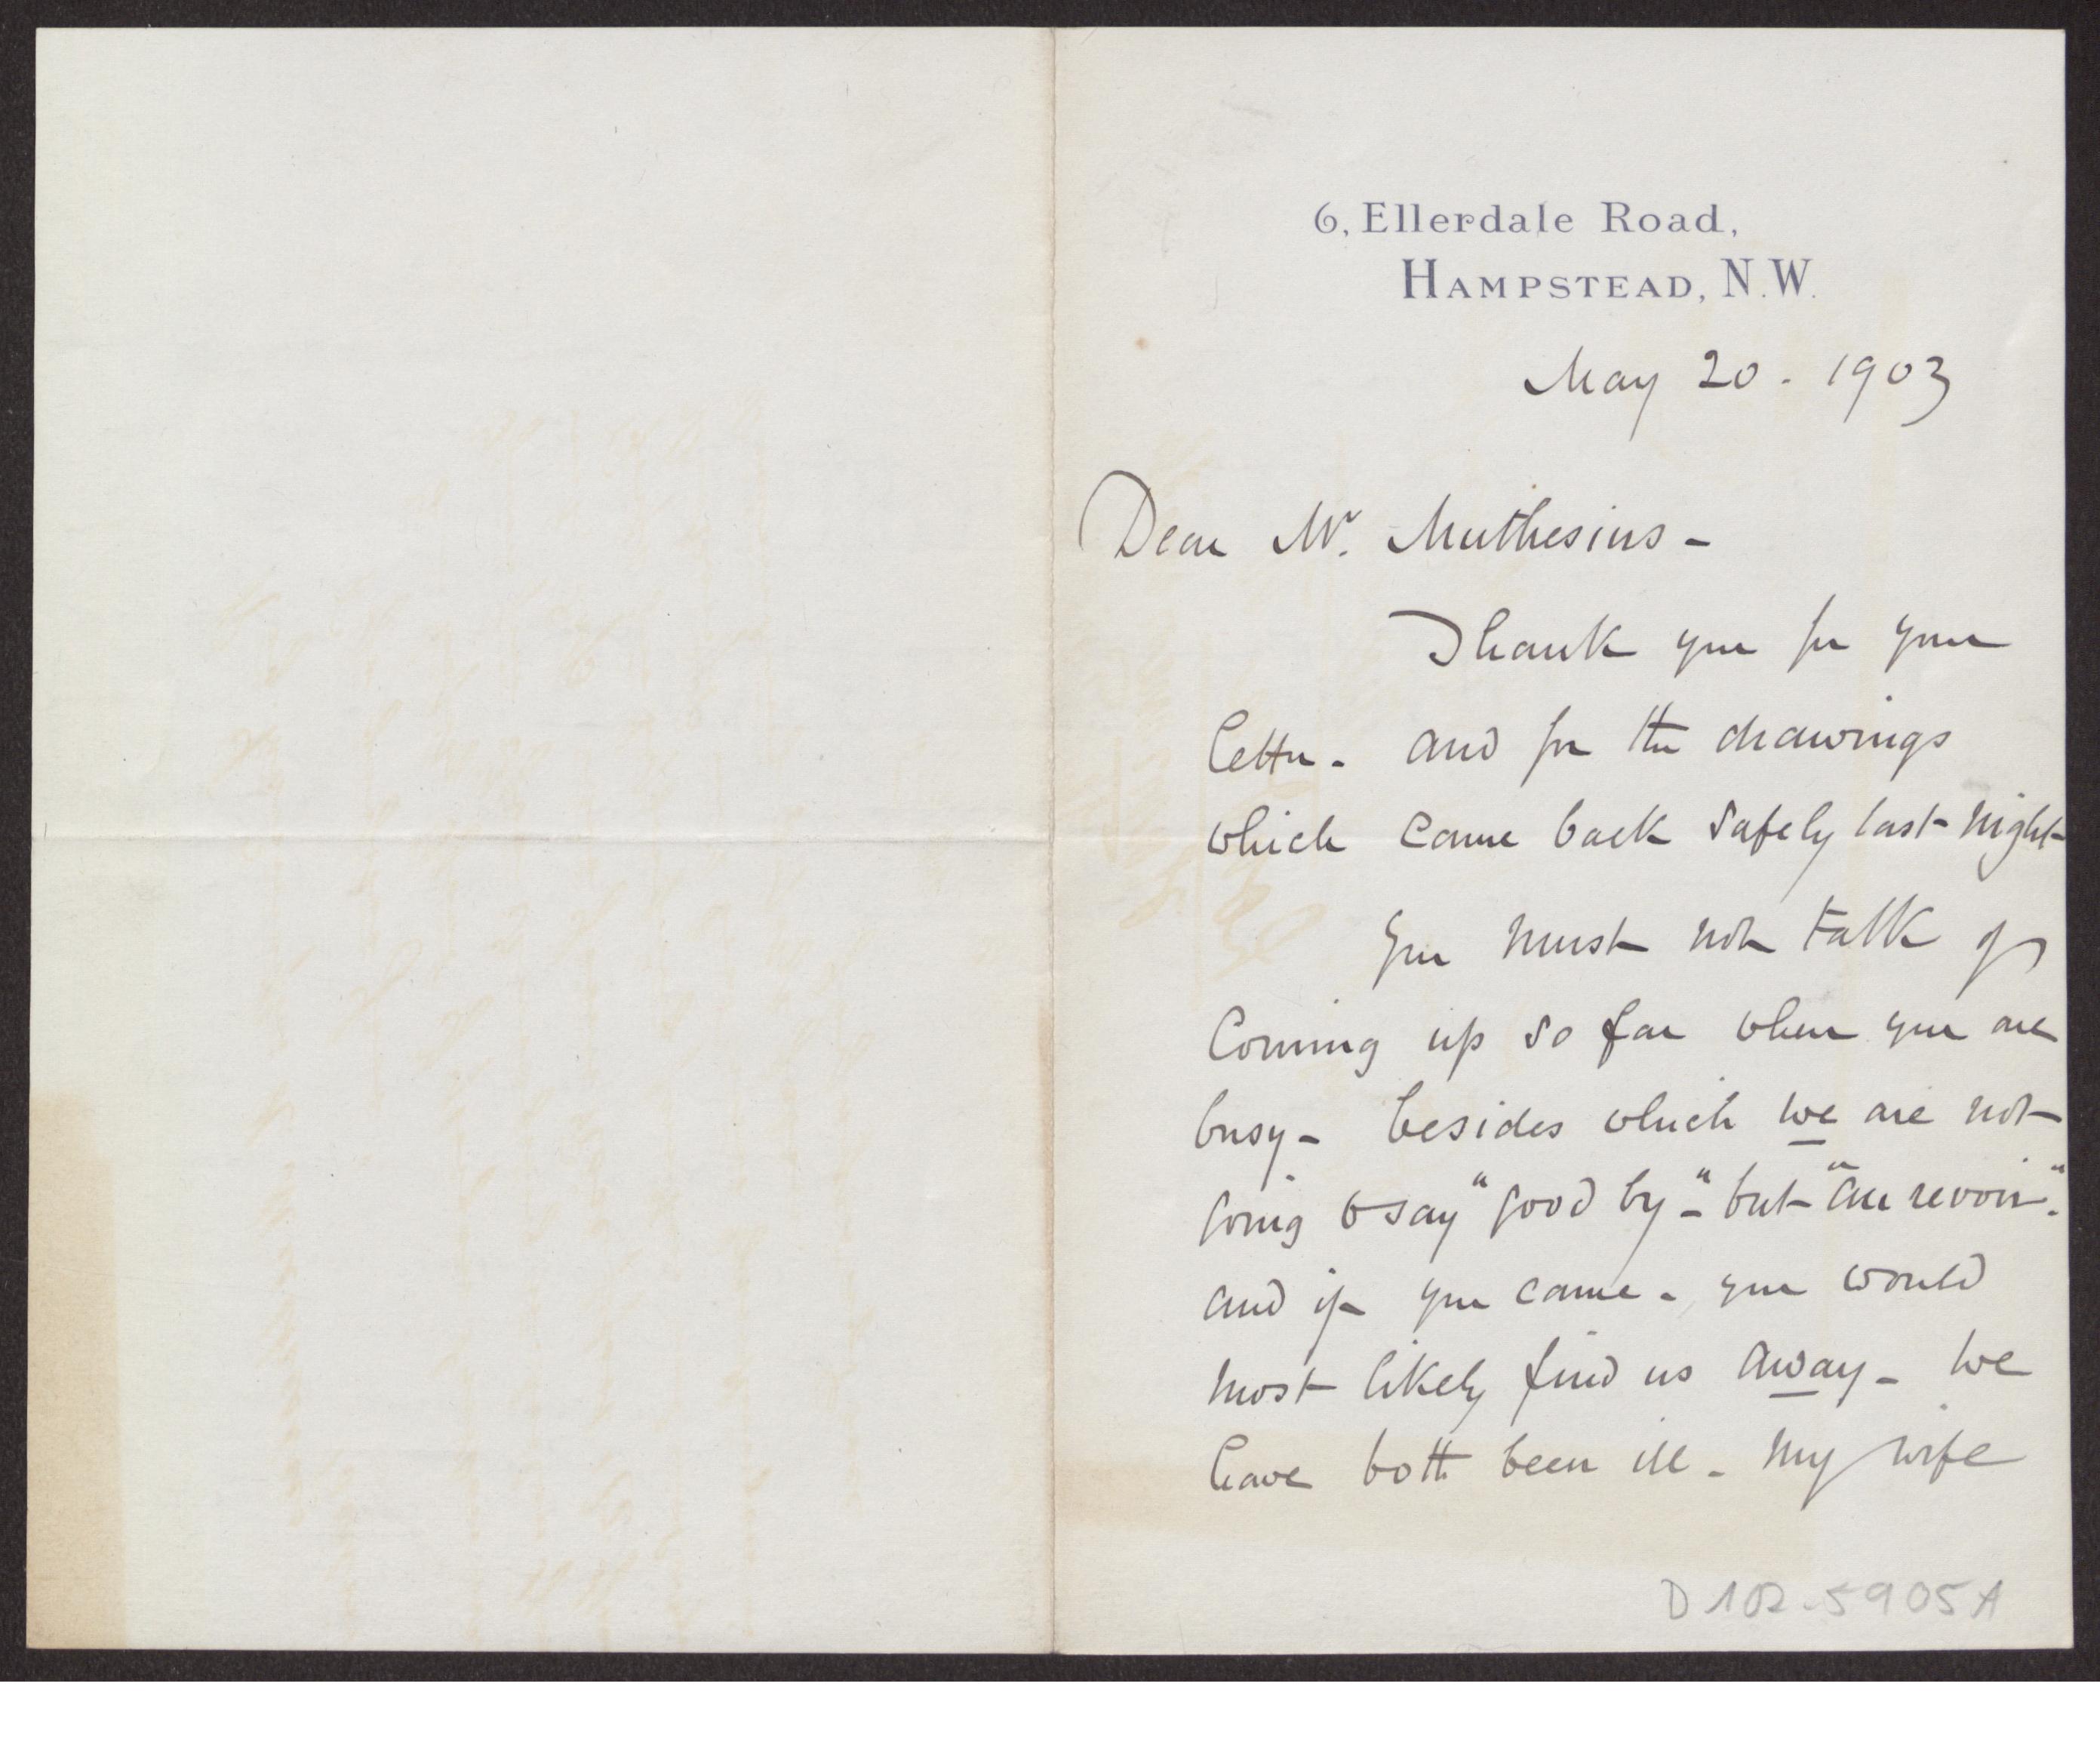 6, Ellerdale Road,
HAMPSTEAD, N.W.
May 20 - 1903
Dear Mr. Muthesius -
Thank you for your
letter - and for the drawings
which came back safely last night
You must not talk of
coming up so far when you are
busy - besides which we are not
going to say "good by" - but "au revoir".
and if you came - you would
most likely find us away - We
have both been ill - my wife
D 102-5905A